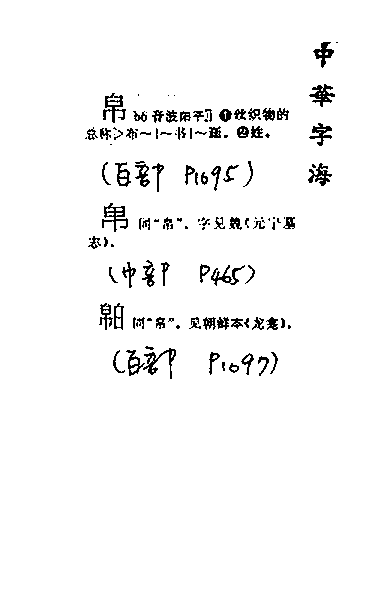 中華字海
帛 bó 音波阳平] ❶丝织物的
总称>布~|~书|~画。❷姓。
(百部 P1095)
帠 同“帛”。字见魏《元宁墓
志》。
(巾部 P465)
同“帛”。见朝鲜本《龙龛》。
(百部 P1097)